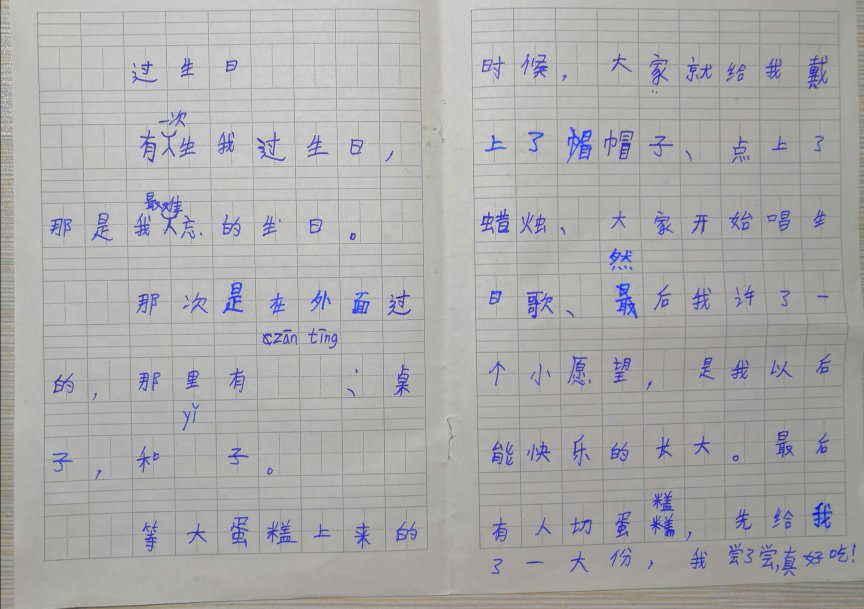 过生日
一次
有人生我过生日，
最难
那是我人忘的生日。
那次是在外面过
cān tīng
的，那里有、桌
yǐ
子，和子。
等大蛋糕上来的
时候，大家就给我戴
上了帽帽子、点上了
蜡烛、大家开始唱生
然
日歌、最后我许了一
个小愿望，是我以后
能快乐的长大。最后
糕
有人切蛋糕，先给我
了一大份，我尝了尝,真好吃!